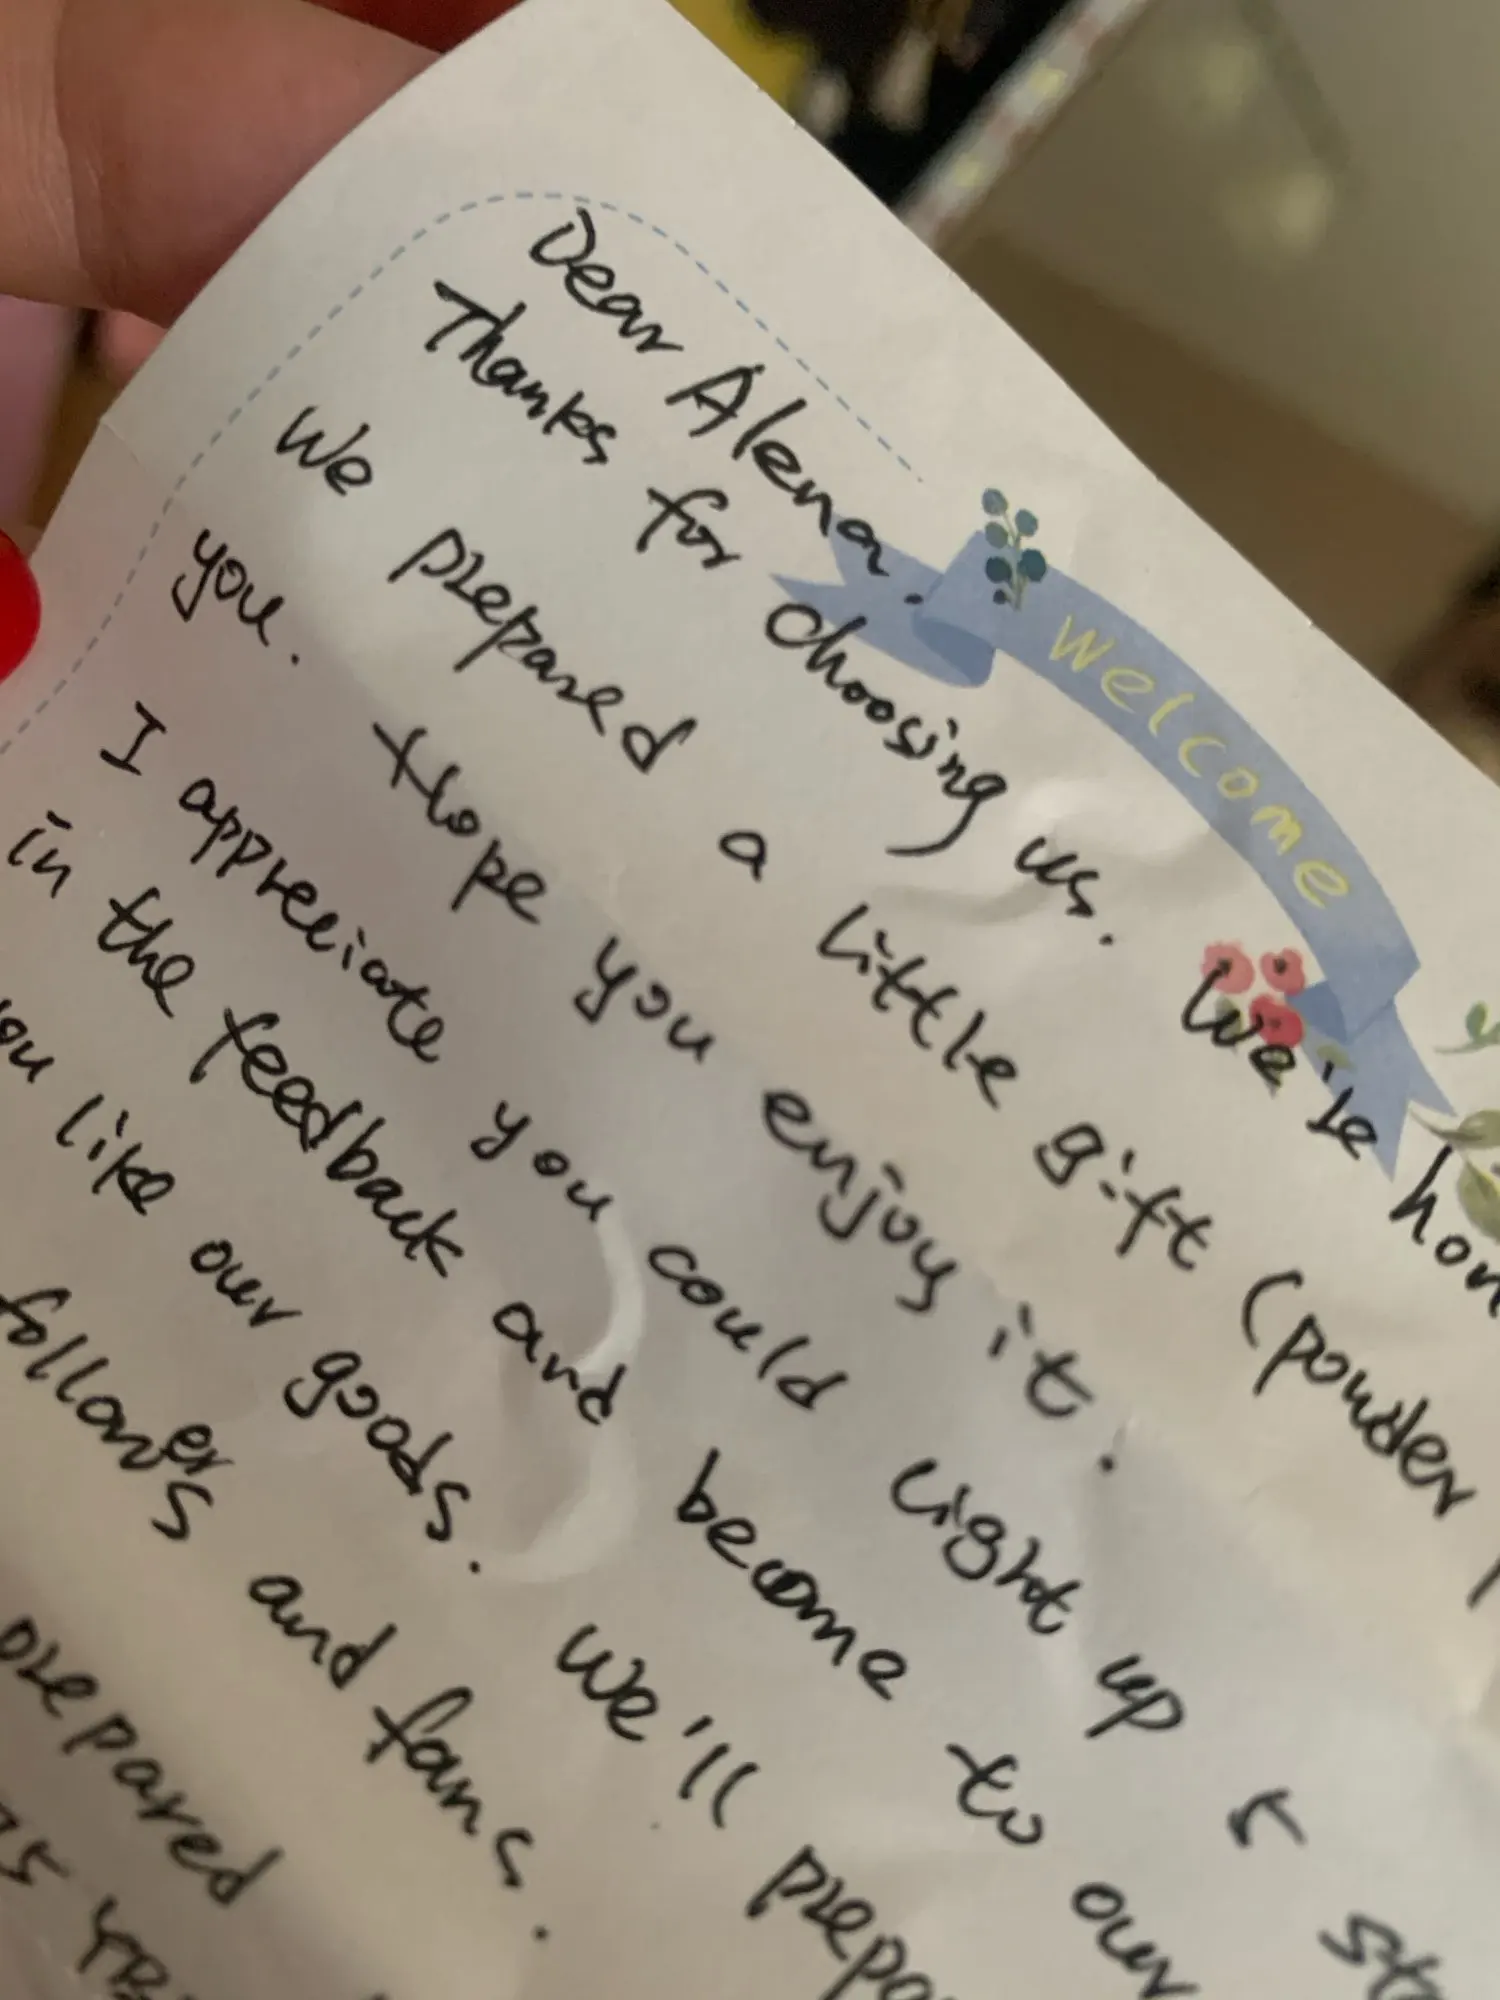 Dear Alena.
welcome
Thanks for choosing us. We're
We prepared a little gift (powder
you. Hope you enjoy it.
I appreciate you could light up 5
in the feedback and become to our
like our goods. We'll
followers and fans.
prepared